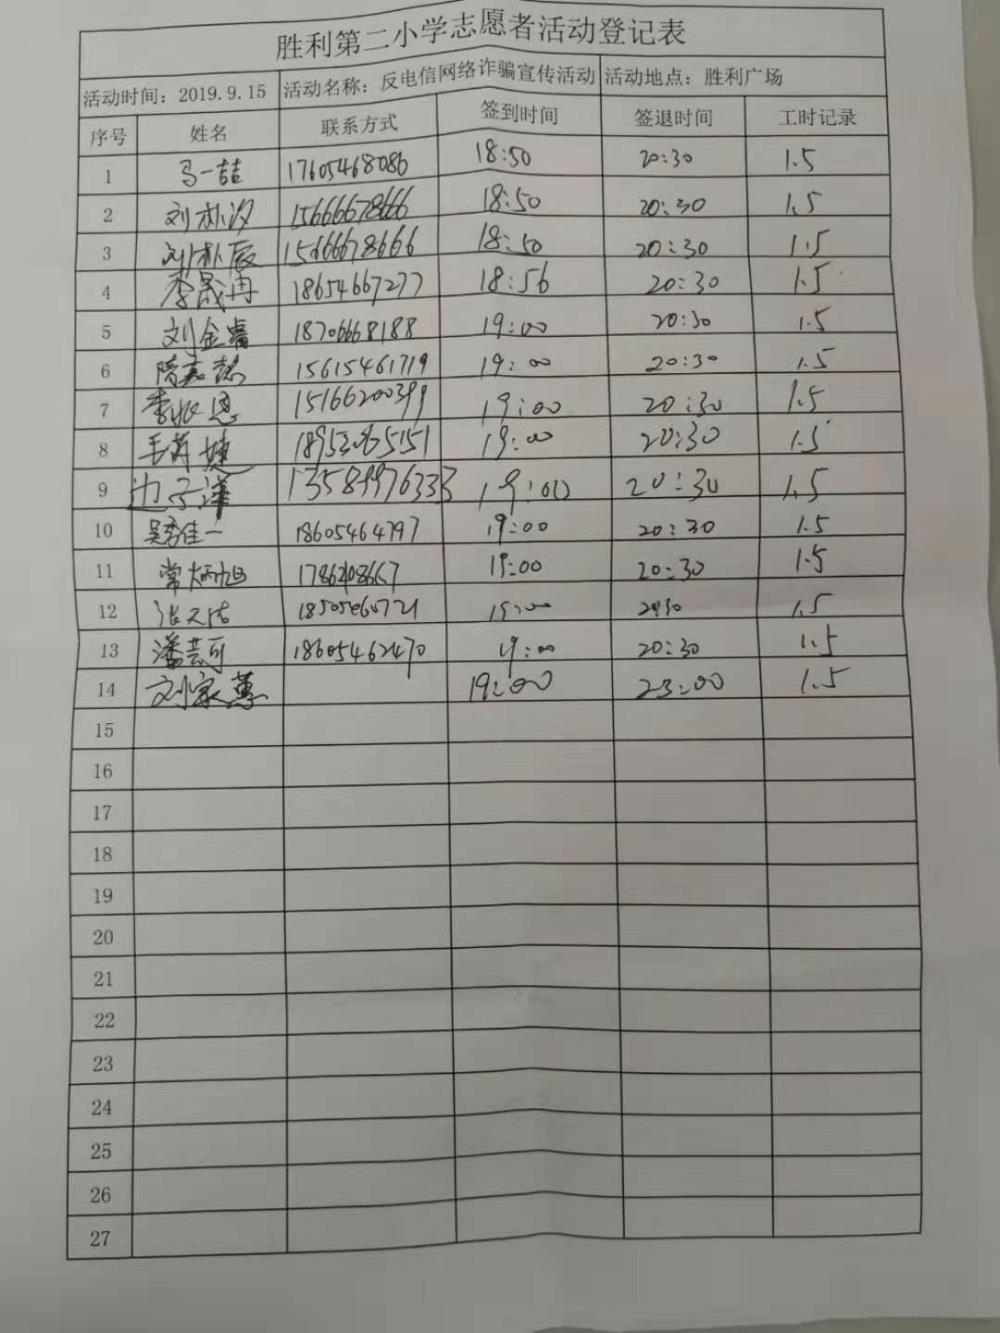 胜利第二小学志愿者活动登记表
活动时间：2019.9.15 活动名称：反电信网络诈骗宣传活动 活动地点：胜利广场
序号 姓名 联系方式 签到时间 签退时间 工时记录
1 马一喆 17605468086 18:50 20:30 1.5
2 刘林汐 15666678666 18:50 20:30 1.5
3 刘林辰 15666678666 18:50 20:30 1.5
4 李晟冉 18654667277 18:56 20:30 1.5
5 刘金睿 18706668188 19:00 20:30 1.5
6 隋嘉懿 15615461719 19:00 20:30 1.5
7 恩 15166200399 19:00 20:30 1.5
8 毛芮婕 19:00 20:30 1.5
9 边子洋 13589976333 19:00 20:30 1.5
10 吴李佳一 18605464797 19:00 20:30 1.5
11 常炳旭 19:00 20:30 1.5
12 张天佑 19:00 1.5
13 潘芸可 18605462470 19:00 20:30 1.5
14 刘家蕙 19:00 23:00 1.5
15
16
17
18
19
20
21
22
23
24
25
26
27